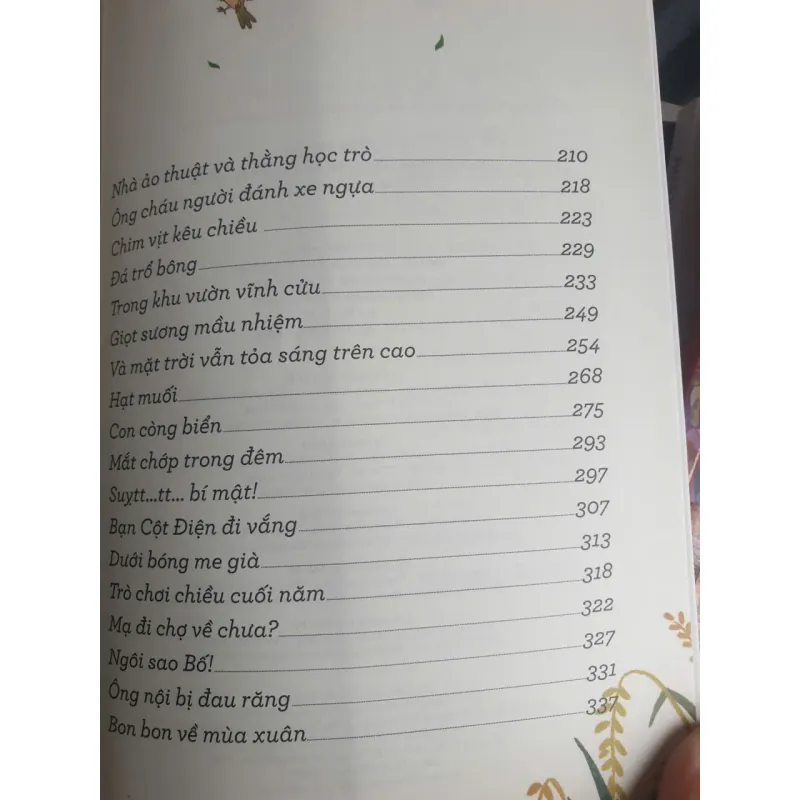 Nhà ảo thuật và thằng học trò 210
Ông cháu người đánh xe ngựa 218
Chim vịt kêu chiều 223
Đá trổ bông 229
Trong khu vườn vĩnh cửu 233
Giọt sương mầu nhiệm 249
Và mặt trời vẫn tỏa sáng trên cao 254
Hạt muối 268
Con còng biển 275
Mắt chớp trong đêm 293
Suỵtt...tt... bí mật! 297
Bạn Cột Điện đi vắng 307
Dưới bóng me già 313
Trò chơi chiều cuối năm 318
Mạ đi chợ về chưa? 322
Ngôi sao Bố! 327
Ông nội bị đau răng 331
Bon bon về mùa xuân 337